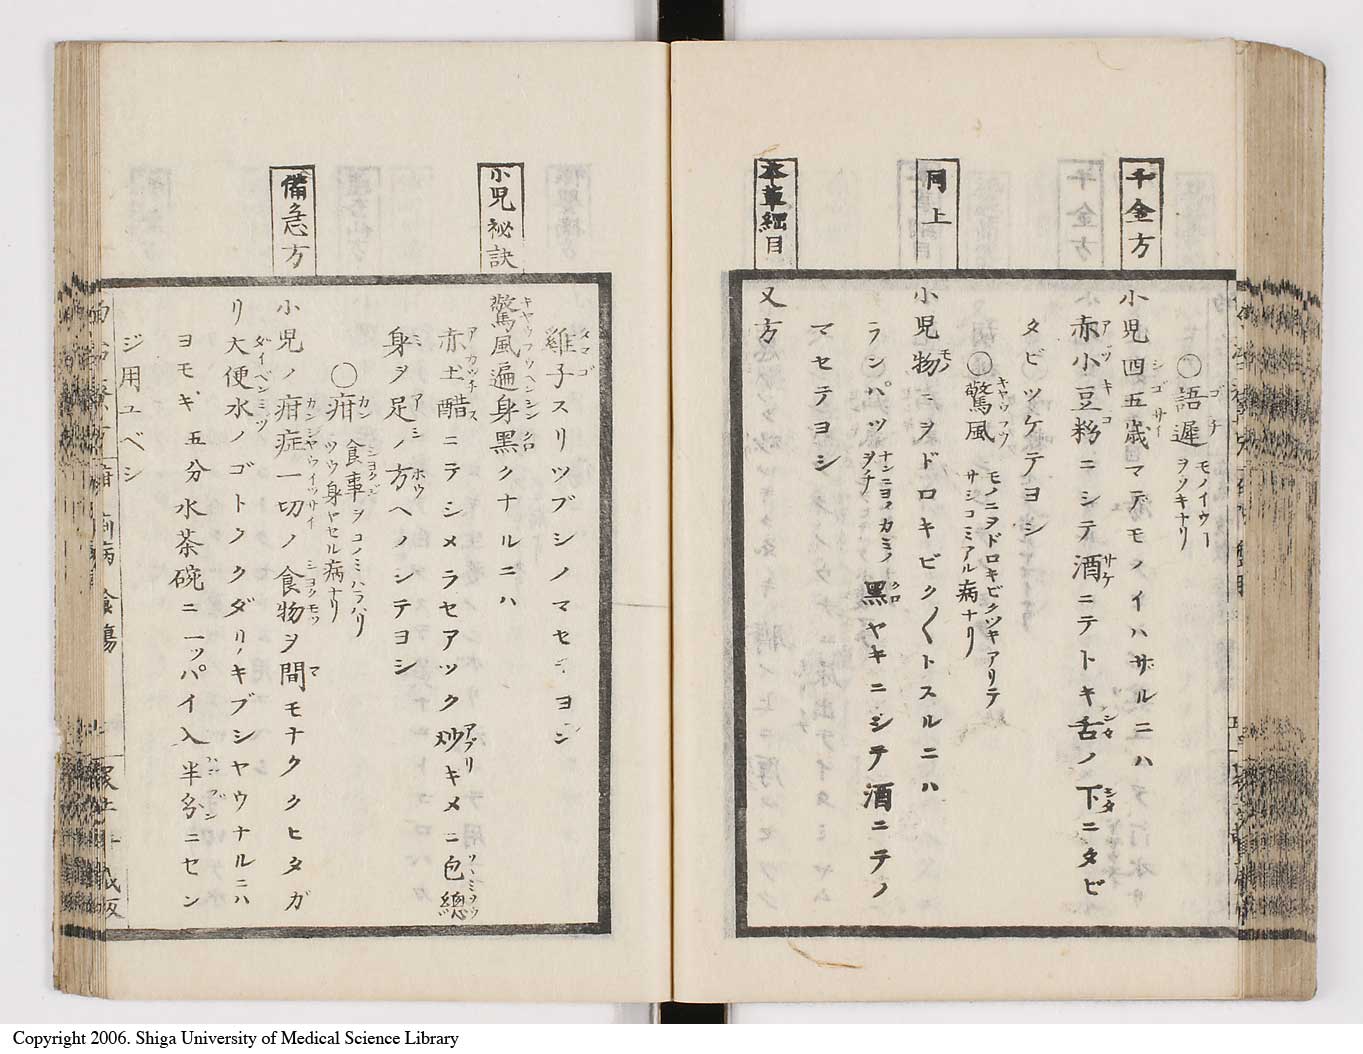 千金方
同上
本草綱目
〇語遲 モノイウーヲソキナリ
小児四五歳マデモノイハザルニハ
赤小豆粉ニシテ酒ニテトキ舌ノ下ニタビ
タビツケテヨシ
〇驚風 モノニヲドロキビクツキアリテサシコミアル病ナリ
小児物ニヲドロキビク〳〵トスルニハ
ランパツ ヲチ 黒ヤキニシテ酒ニテノ
マセテヨシ
又方
小児秘訣
備急方
雞子スリツブシノマセテヨシ
驚風遍身黒クナルニハ
赤土醋ニテシメラセアツク炒キメニ包總
身ヲ足ノ方ヘノシテヨシ
〇疳 食事ヲコノミハラハリツウ身ヤセル病ナリ
小児ノ疳症一切ノ食物ヲ間モナククヒタガ
リ大便水ノゴトククダリノキブシヤウナルニハ
ヨモギ五分水茶碗ニ一ッパイ入半分ニセン
ジ用ユベシ
Copyright 2006. Shiga University of Medical Science Library